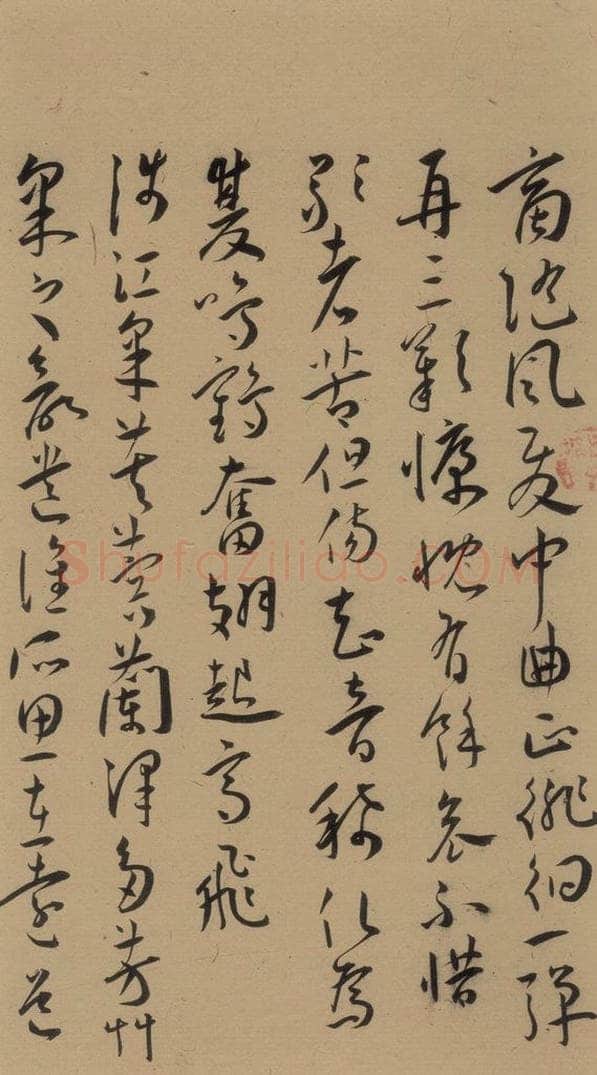 商隨風發中曲正徘徊一彈
再三歎慷慨有餘哀不惜
歌者苦但傷知音稀化為
雙鳴鶴奮翅起高飛
涉江采芙蓉蘭澤多芳艸
采之欲遺誰所思在遠道
Shufaziliao.COM